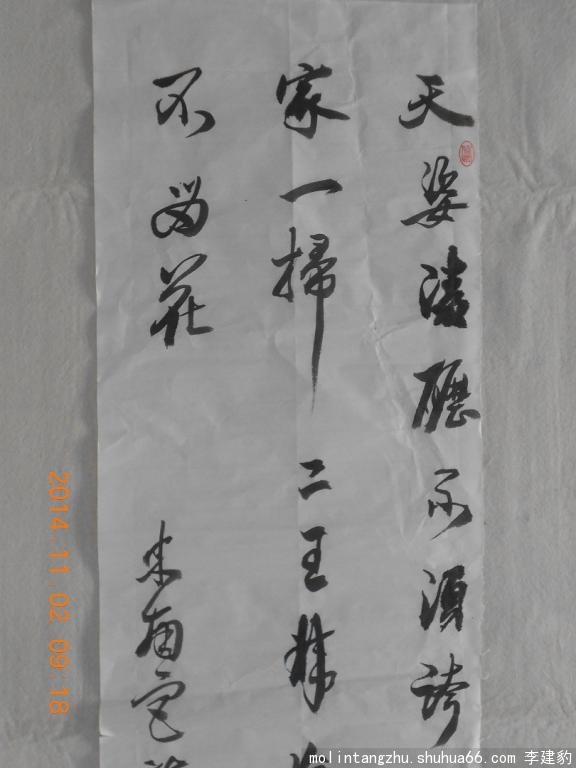 天姿不須誇
家一掃二王
不留花
米南宮
2014.11.02 09:18
molintangzhu.shuhua66.com 李建豹